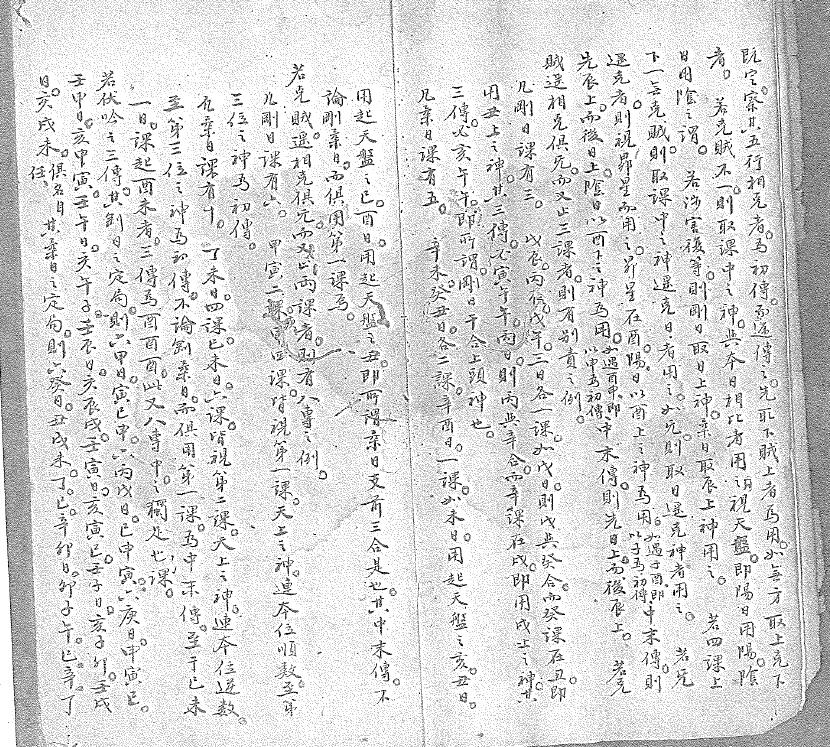 既定。察其五行相克者。為初傳。而逐傳之。先取下賊上者為用。如無方取上克下
者。若克賊不一。則取課中之神。與本日相比者用。須視天盤。即陽日用陽。陰
日用陰之謂。若涉害復等。則剛日取日上神。柔日取辰上神用之。若四課上
下一無克賊。則取課中之神遥克日者用之。如無。則取日遥克神者用之。若無
遥克者。則視昴星而用之。昴星在酉。陽日以酉上之神為用。如遇子酉即以子為初傳。中末傳。則
先辰上。而後日上。陰日以酉下之神為用。如遇酉申即以申為初傳。中末傳。則先日上。而後辰上。若克
賊遥相克俱无。而又止三課者。則有別責之例。
凡剛日課有三。戊辰。丙辰。戊午。三日各一課。如戊日。則戊與癸合。而癸課在丑。即
用丑上之神。其三傳。必寅午午。丙日。則丙與辛合。而辛課在戌。即用戌上之神。其
三傳。必亥午午。即所謂剛日干合上頭神也。
凡柔日課有五。辛未。癸丑。日。各二課。辛酉日。一課。如未日。用起天盤之亥。丑日。
用起天盤之巳。酉日。用起天盤之丑。即所謂柔日支前三合是也。其中末傳。不
論剛柔日。而俱用第一課焉。
若克賊遥相克俱无。而又止兩課者。則有八專之例。
凡剛日課有六。甲寅二課。四課。皆視第一課。天上之神。連本位順數。至第
三位之神為初傳。
凡柔日課有十。丁未日四課。己未日六課。皆視第二課。天上之神。連本位逆數。
至第三位之神為初傳。不論剛柔日。而俱用第一課。為中末傳。至于己未
一日。課起酉未者。三傳為酉酉酉。此又八專中之獨足也。課。
若伏吟之三傳。其剛日之定局。則六甲日。寅巳申。六丙戊日。巳申寅。六庚日。申寅巳。
壬申日。亥申寅。壬午日。亥午子。壬辰日。亥辰戌。壬寅日。亥寅巳。壬子日。亥子卯。壬戌
日。亥戌未。俱名自任。其柔日之定局。則六癸日。丑戌未。丁。己。辛卯日。卯子午。己。辛。丁